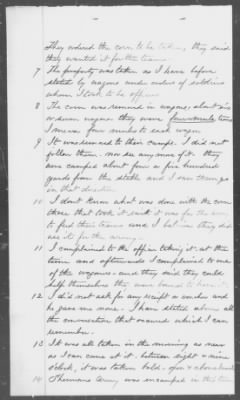 They ordered the corn to be taken, they said
they wanted it for the teams.
7 The property was taken as I have before
stated by wagons under orders of soldiers
whom I took to be officers
8 The corn was removed in wagons, about six
or seven wagons they were four mule teams
I mean four mules to each wagon
9 It was removed to their camps. I did not
follow them nor see any more of it. they
were camped about four or five hundred
yards from the stable and I saw them go
in that direction
10 I dont know what was done with the corn
those that took it said it was for the army
to feed their teams and I
11 I complained to the officer taking it, at the
time and afterwards I complained to one
of the wagoners and they said they could
help themselves they were bound to have it
12 I did not ask for any receipt or voucher and
he gave me none. I have stated above all
the conversation that occurred which I can
remember.
13 It was all taken in the morning as near
as I can come at it between eight & nine
o'clock, it was taken bold & above board
14 Shermans Army was encamped in this